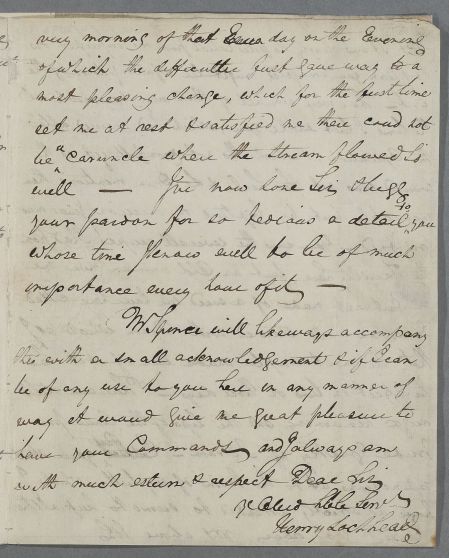 very morning of that Even day on the Evening
of which the difficultie first gave way to a
most pleasing change, which for the first time
set me at rest & satisfied me there coud not
be "a caruncle where the stream flowed so
well" — I've now done Sir & beg
your pardon for so tedious a detail to you
whose time I know well to be of much
importance every hour of it —
Mr Spence will likeways accompany
this with a small acknowledgement & if I can
be of any use to you here in any manner of
way it woud give me great pleasure to
have your Commands and I always am
with much esteem & respect Dear Sir
Yr Obed Serv.t
Henry Lochhead